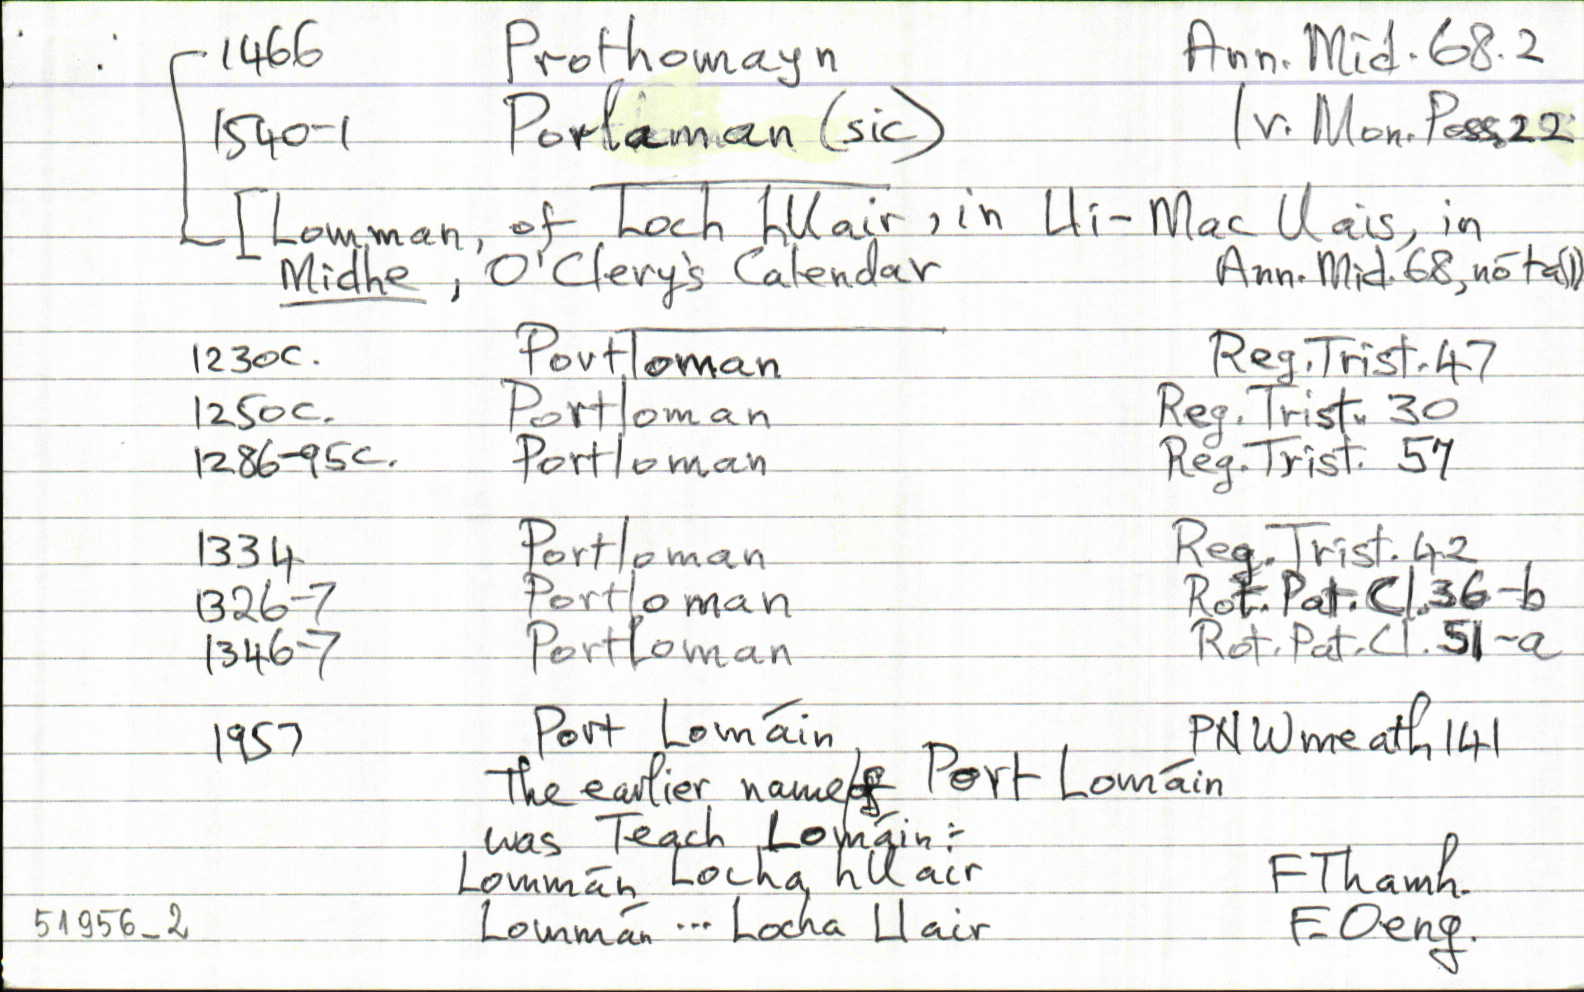 1466 Prothomayn Ann. Mid. 68.2
1540-1 Portaman (sic) Iv. Mon. Poss. 22
[Lomman, of Loch hUair, in Ui-Mac Uais, in
Midhe, O'Clery's Calendar Ann. Mid. 68, nóta(1)
1230c. Portloman Reg. Trist. 47
1250c. Portloman Reg. Trist. 30
1286-95c. Portloman Reg. Trist. 57
1334 Portloman Reg. Trist. 42
1326-7 Portloman Rot. Pat. Cl. 36-b
1346-7 Portloman Rot. Pat. Cl. 51-a
1957 Port Lomáin PNWmeath 141
The earlier name of Port Lomáin
was Teach Lomáin:-
Lommán Locha hUair F Thamh.
Lommán ... Locha Uair F. Oeng.
51956_2